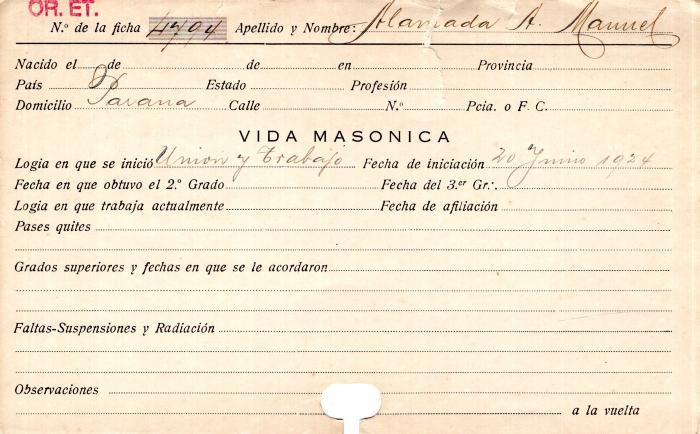 OR. ET.
N.º de la ficha 4794 Apellido y Nombre: Alameda A. Manuel
Nacido el de de en Provincia
País Estado Profesión
Domicilio Parana Calle N.º Pcia. o F. C.
VIDA MASONICA
Logia en que se inició Union y Trabajo Fecha de iniciación 20 Junio 1924
Fecha en que obtuvo el 2.º Grado Fecha del 3.er Gr:.
Logia en que trabaja actualmente Fecha de afiliación
Pases quites
Grados superiores y fechas en que se le acordaron
Faltas-Suspensiones y Radiación
Observaciones
a la vuelta